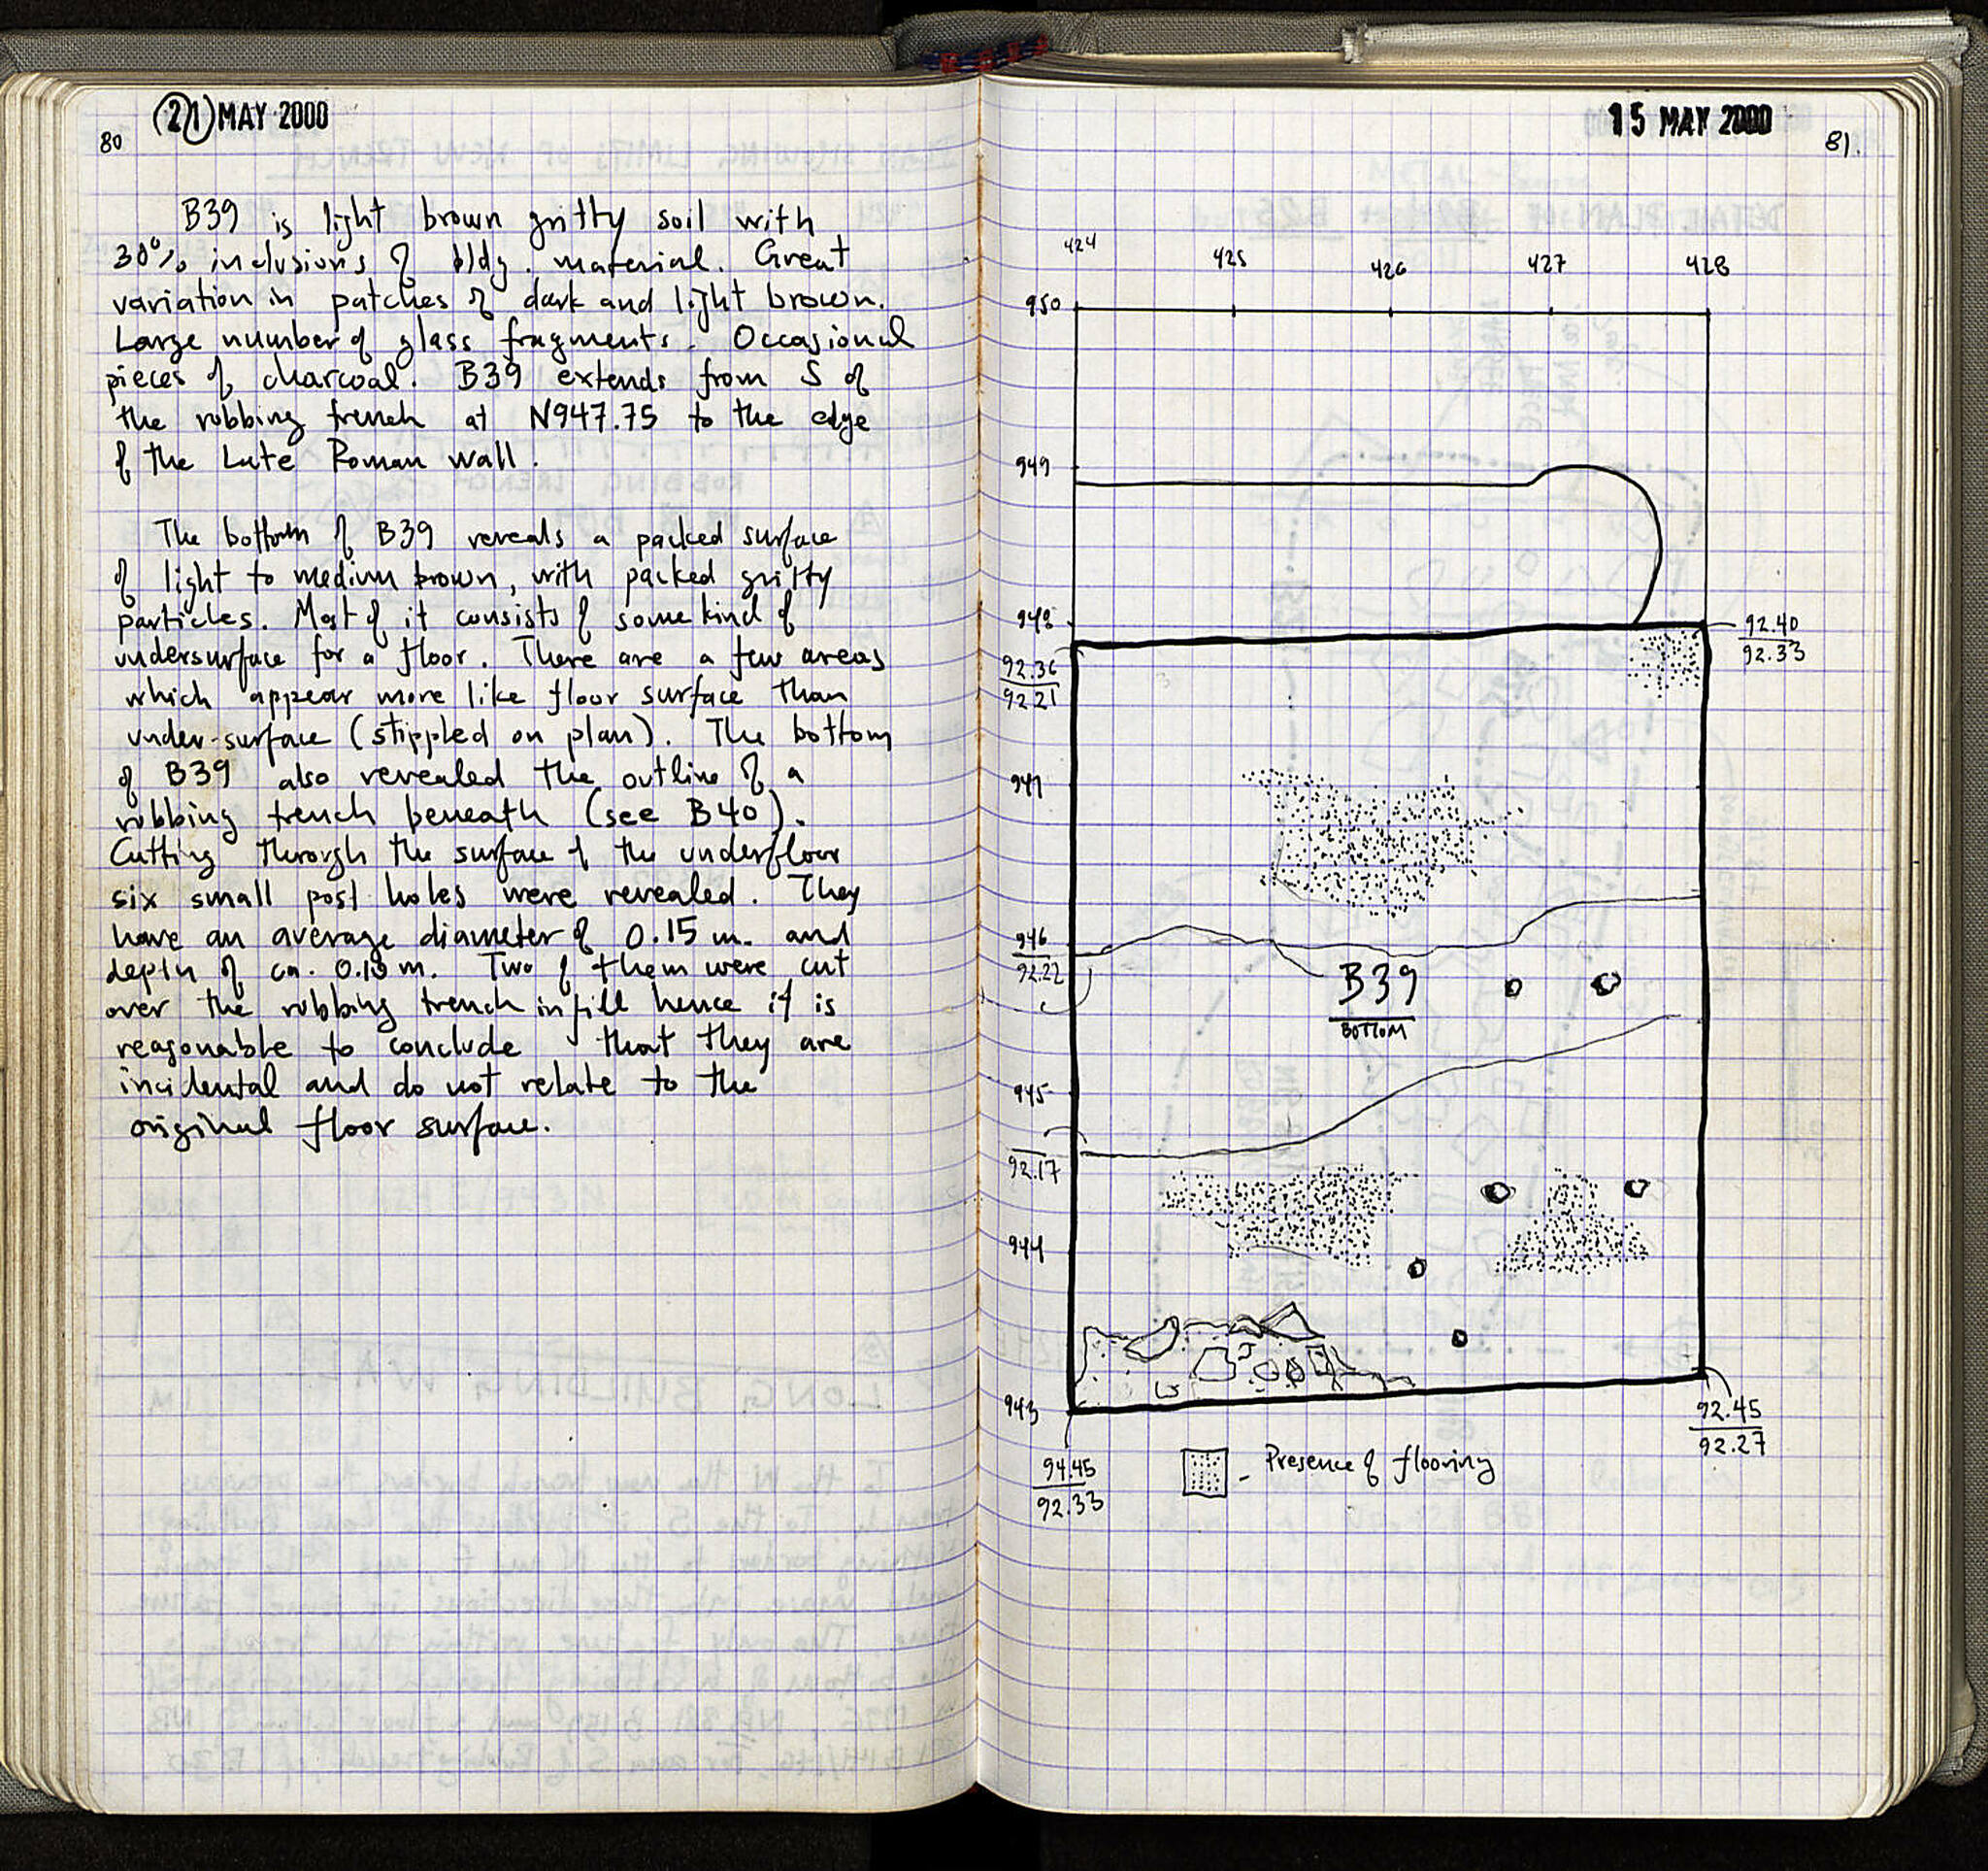 21 MAY 2000
80
B39 is light brown gritty soil with
30% inclusions of bldg. material. Great
variation in patches of dark and light brown.
Large number of glass fragments. Occasional
pieces of charcoal. B39 extends from S of
the robbing trench at N947.75 to the edge
of the Late Roman wall.
The bottom of B39 reveals a packed surface
of light to medium brown, with packed gritty
particles. Most of it consists of some kind of
undersurface for a floor. There are a few areas
which appear more like floor surface than
under-surface (stippled on plan). The bottom
of B39 also revealed the outline of a
robbing trench beneath (see B40).
Cutting through the surface of the underfloor
six small post holes were revealed. They
have an average diameter of 0.15 m. and
depth of ca. m. Two of them were cut
over the robbing trench infill hence it is
reasonable to conclude that they are
incidental and do not relate to the
original floor surface.
15 MAY 2000
81.
424
425
426
427
428
950
949
948
92.40
92.33
92.36
92.21
947
946
92.22
B39
BOTTOM
945
92.17
944
943
92.45
92.27
94.45
92.33
- Presence of flooring